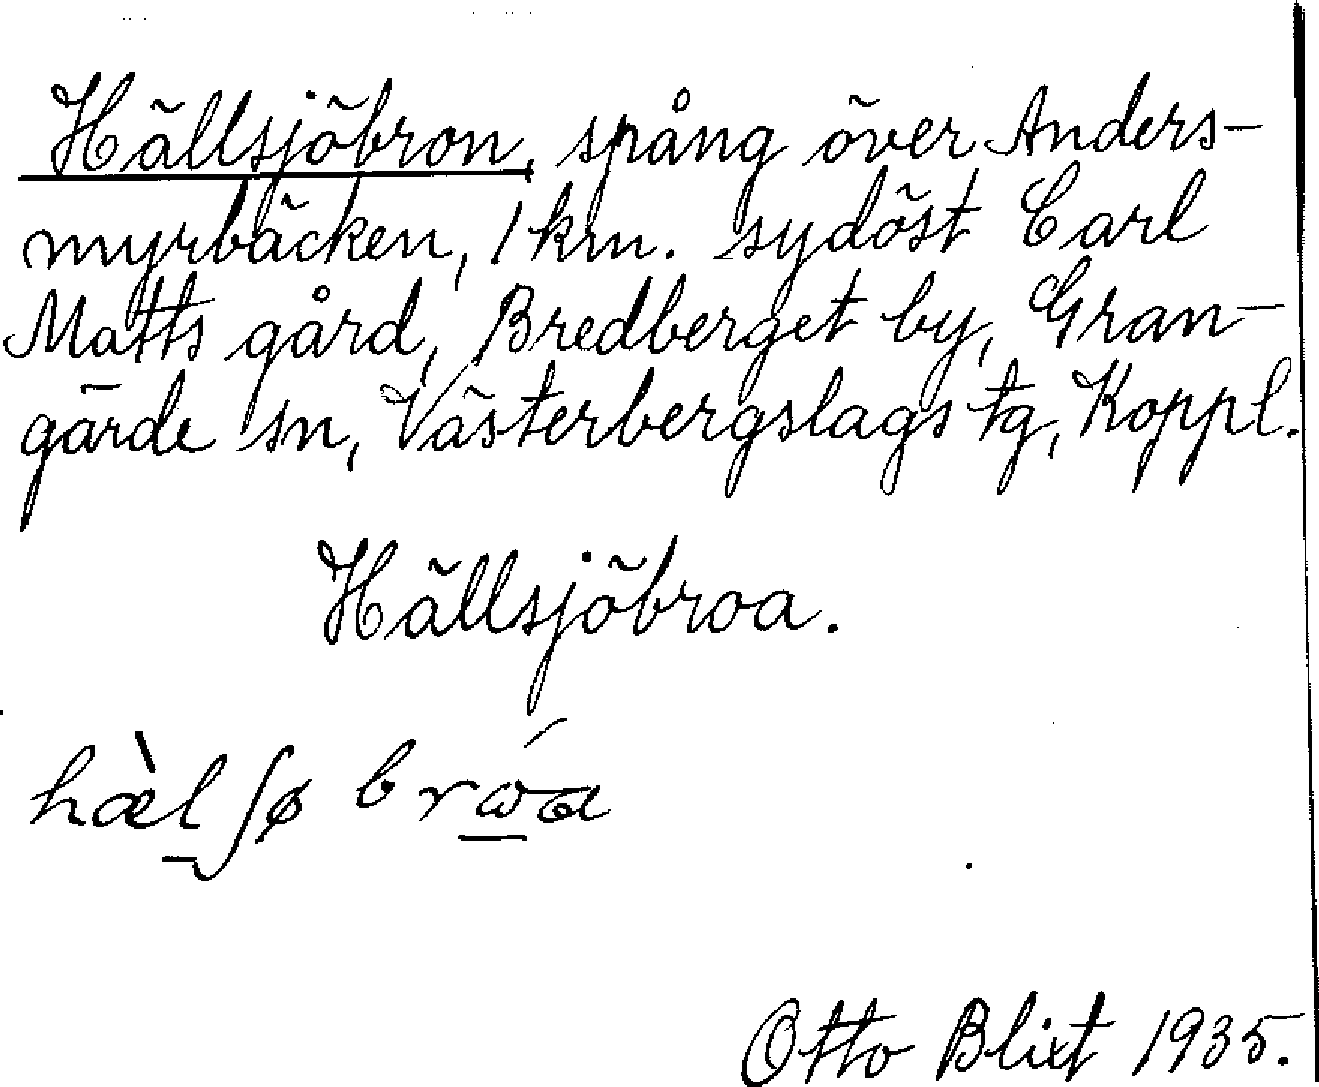 Hällsjöbron, spång över Anders-
myrbäcken, 1 km. sydöst Carl
Matts gård, Bredberget by, Gran-
gärde sn, Västerbergslags tg, Koppl.
Hällsjöbroa.
hæ̀l̠ʃø brώ̠a
Otto Blixt 1935.